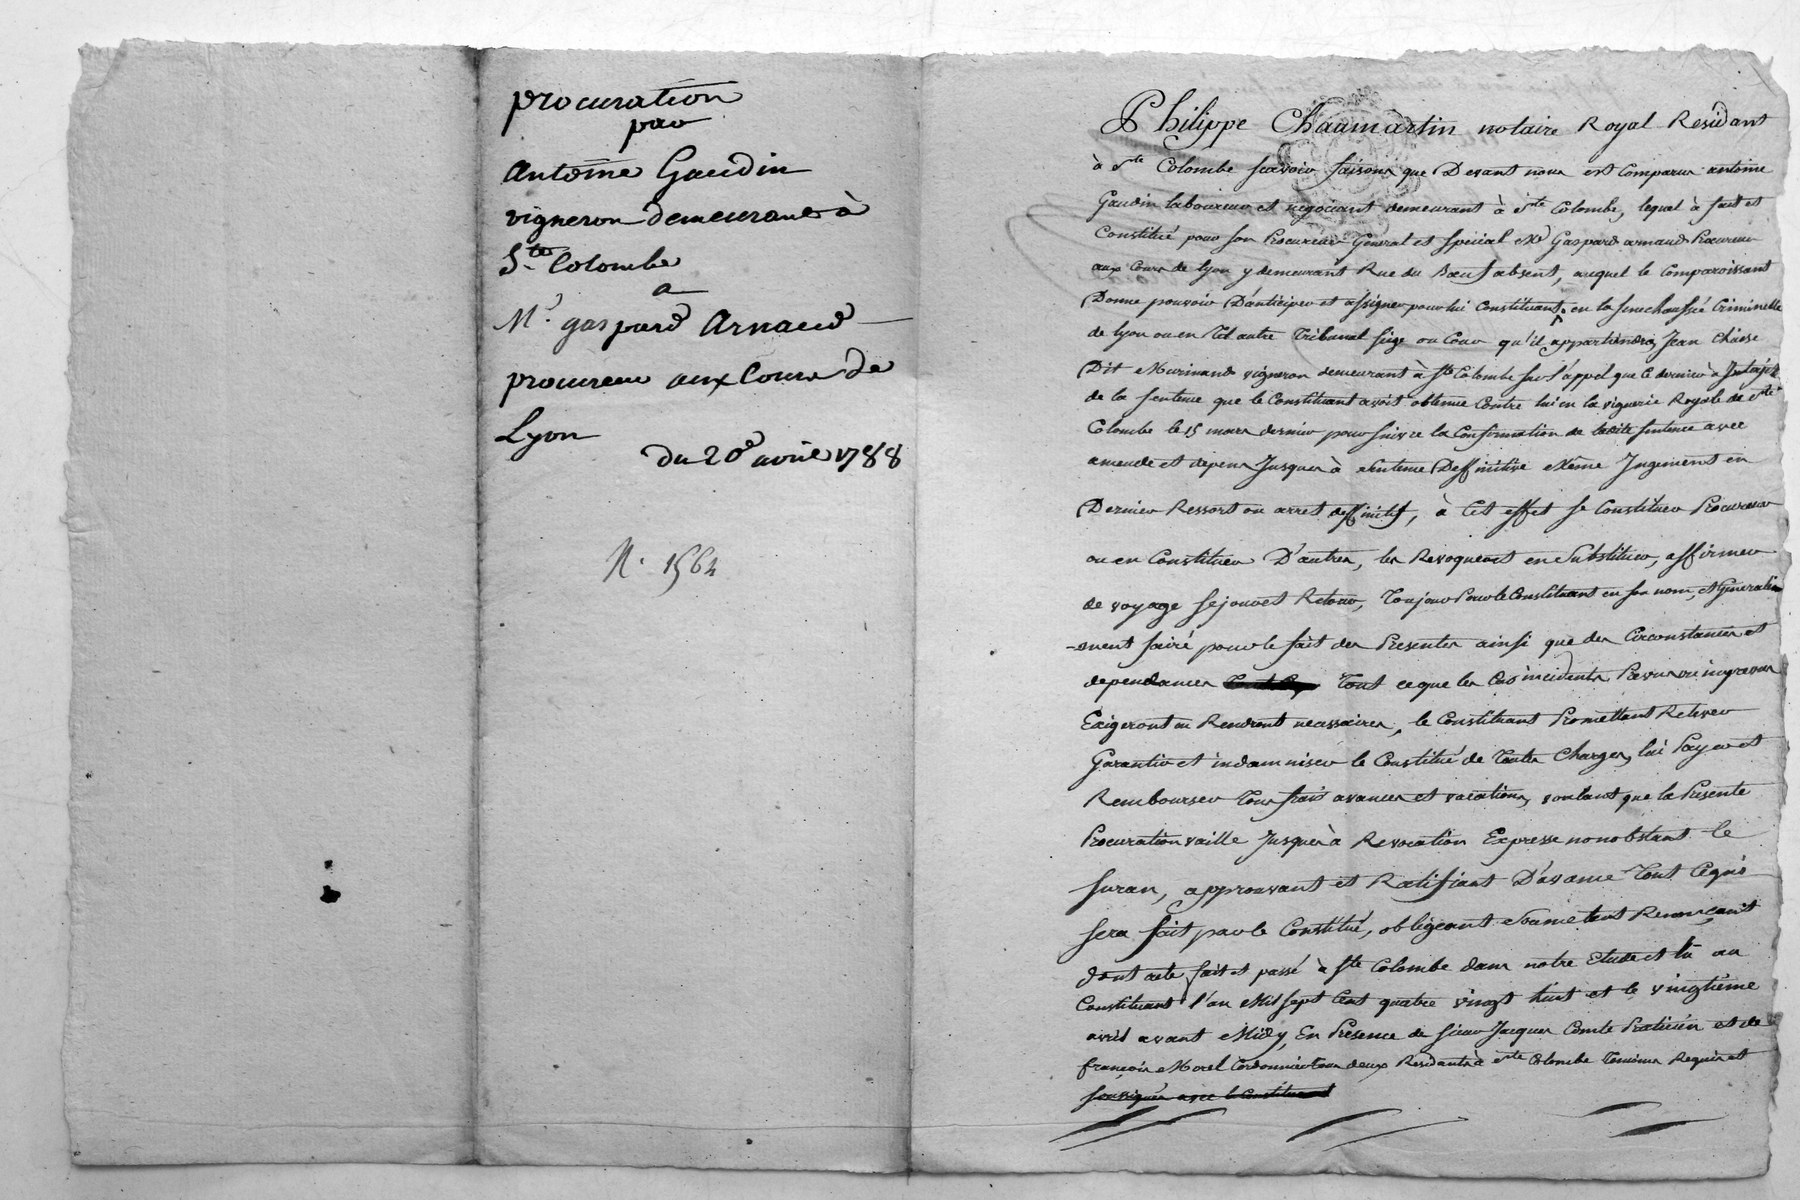 procuration
par
Antoine Gaudin
vigneron demeurant à
Ste Colombe
a
Mr. gaspard Arnaud
procureur aux Cours de
Lyon
du 20e avril 1788
N. 1564
Philippe Chaumartin notaire Royal Residant
à Ste Colombe scavoir faisons que Devant nous est Comparu antoine
Gaudin laboureur et négociant demeurant à Ste Colombe, lequel à fait et
Constitué pour son Procureur General et special Me Gaspard arnaud Procureur
aux Cours de lyon y demeurant Rue du Boeuf absent, auquel le Comparoissant
Donne pouvoir D'anticiper et assigner pour lui Constituant en la senechaussée Criminelle
de lyon ou en tel autre Tribunal siege ou Cour qu'il appartiendra, Jean
Dit vigneron demeurant à Ste Colombe sur l'appel que ce dernier à
de la sentence que le Constituant avoit obtenue Contre lui en la viguerie Royale de Ste
Colombe le 15 mars dernier poursuivre la Confirmation de ladite sentence avec
amende et depens Jusques à sentence Deffinitive même Jugement en
Dernier Ressort ou arret deffinitif, à Cet effet se Constituer Procureur
ou en Constituer D'autres, les Revoquer et en Substituer, affirmer
de voyage sejour et Retour, Toujours Pour le Constituant en son nom, et Generale
-ment faire pour le fait des Presentes ainsi que des Circonstances et
dependances Tout ce que les Cas incidents Prevus ou imprevus
Exigeront ou Rendront necessaires, le Constituant Promettant Relever
Garantir et indamniser le Constitué de Toutes Charges, lui Payer et
Rembourser Tous frais avances et vacations, voulant que la Presente
Procuration vaille Jusques à Revocation Expresse nonobstant le
suran, approuvant et Ratifiant D'avance Tout Ce qui
sera fait par le Constitué, obligeant soumettant Renonçant
dont acte, fait et passé à Ste Colombe dans notre Etude et lu au
Constituant l'an Mil sept Cent quatre vingt huit et le vingtième
avril avant Midy, En Presence de sieur Jacques Comte Praticien et de
françois Morel Cordonnier tous deux Residants à Ste Colombe Temoins Requis et
soussignés avec le Constituant